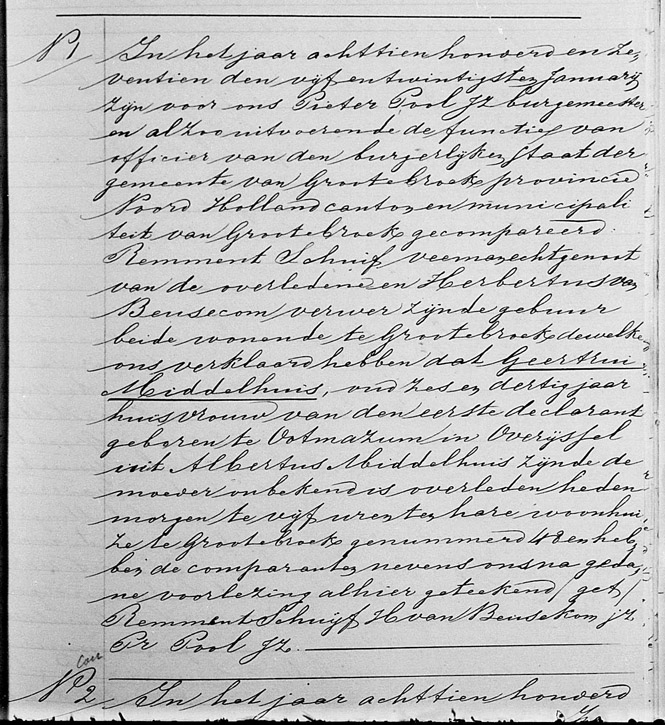 No 1 In het jaar achttien honderd en ze,
ventien den vijf en twintigsten Januarij
zijn voor ons Pieter Pool Jz burgemeester
en alzoo uitvoerende de functie van
officier van den burgerlijken staat der
gemeente van Grootebroek provincie
Noord Holland canton en municipali
teit van Grootebroek gecompareerd.
Remment Schuif veeman echtgenoot
van de overledene en Herbertus van
Beusecom verwer zijnde gebuur
beide wonende te Grootebroek dewelke
ons verklaard hebben dat Geertrui
Middelhuis, oud zes en dertig jaar
huisvrouw van den eerste declarant
geboren te Ootmazum in Overijssel
uit Albertus Middelhuis zijnde de
moeder onbekend is overleden heden
morgen te vijf uren ten hare woonhui
ze te Grootebroek genummerd 48 en heb,
ben de comparanten nevens ons na geda,
ne voorlezing alhier geteekend /get/
Remment Schuijf H van Beusekom jz
Pr Pool Jz.
No 2 In het jaar achttien honderd